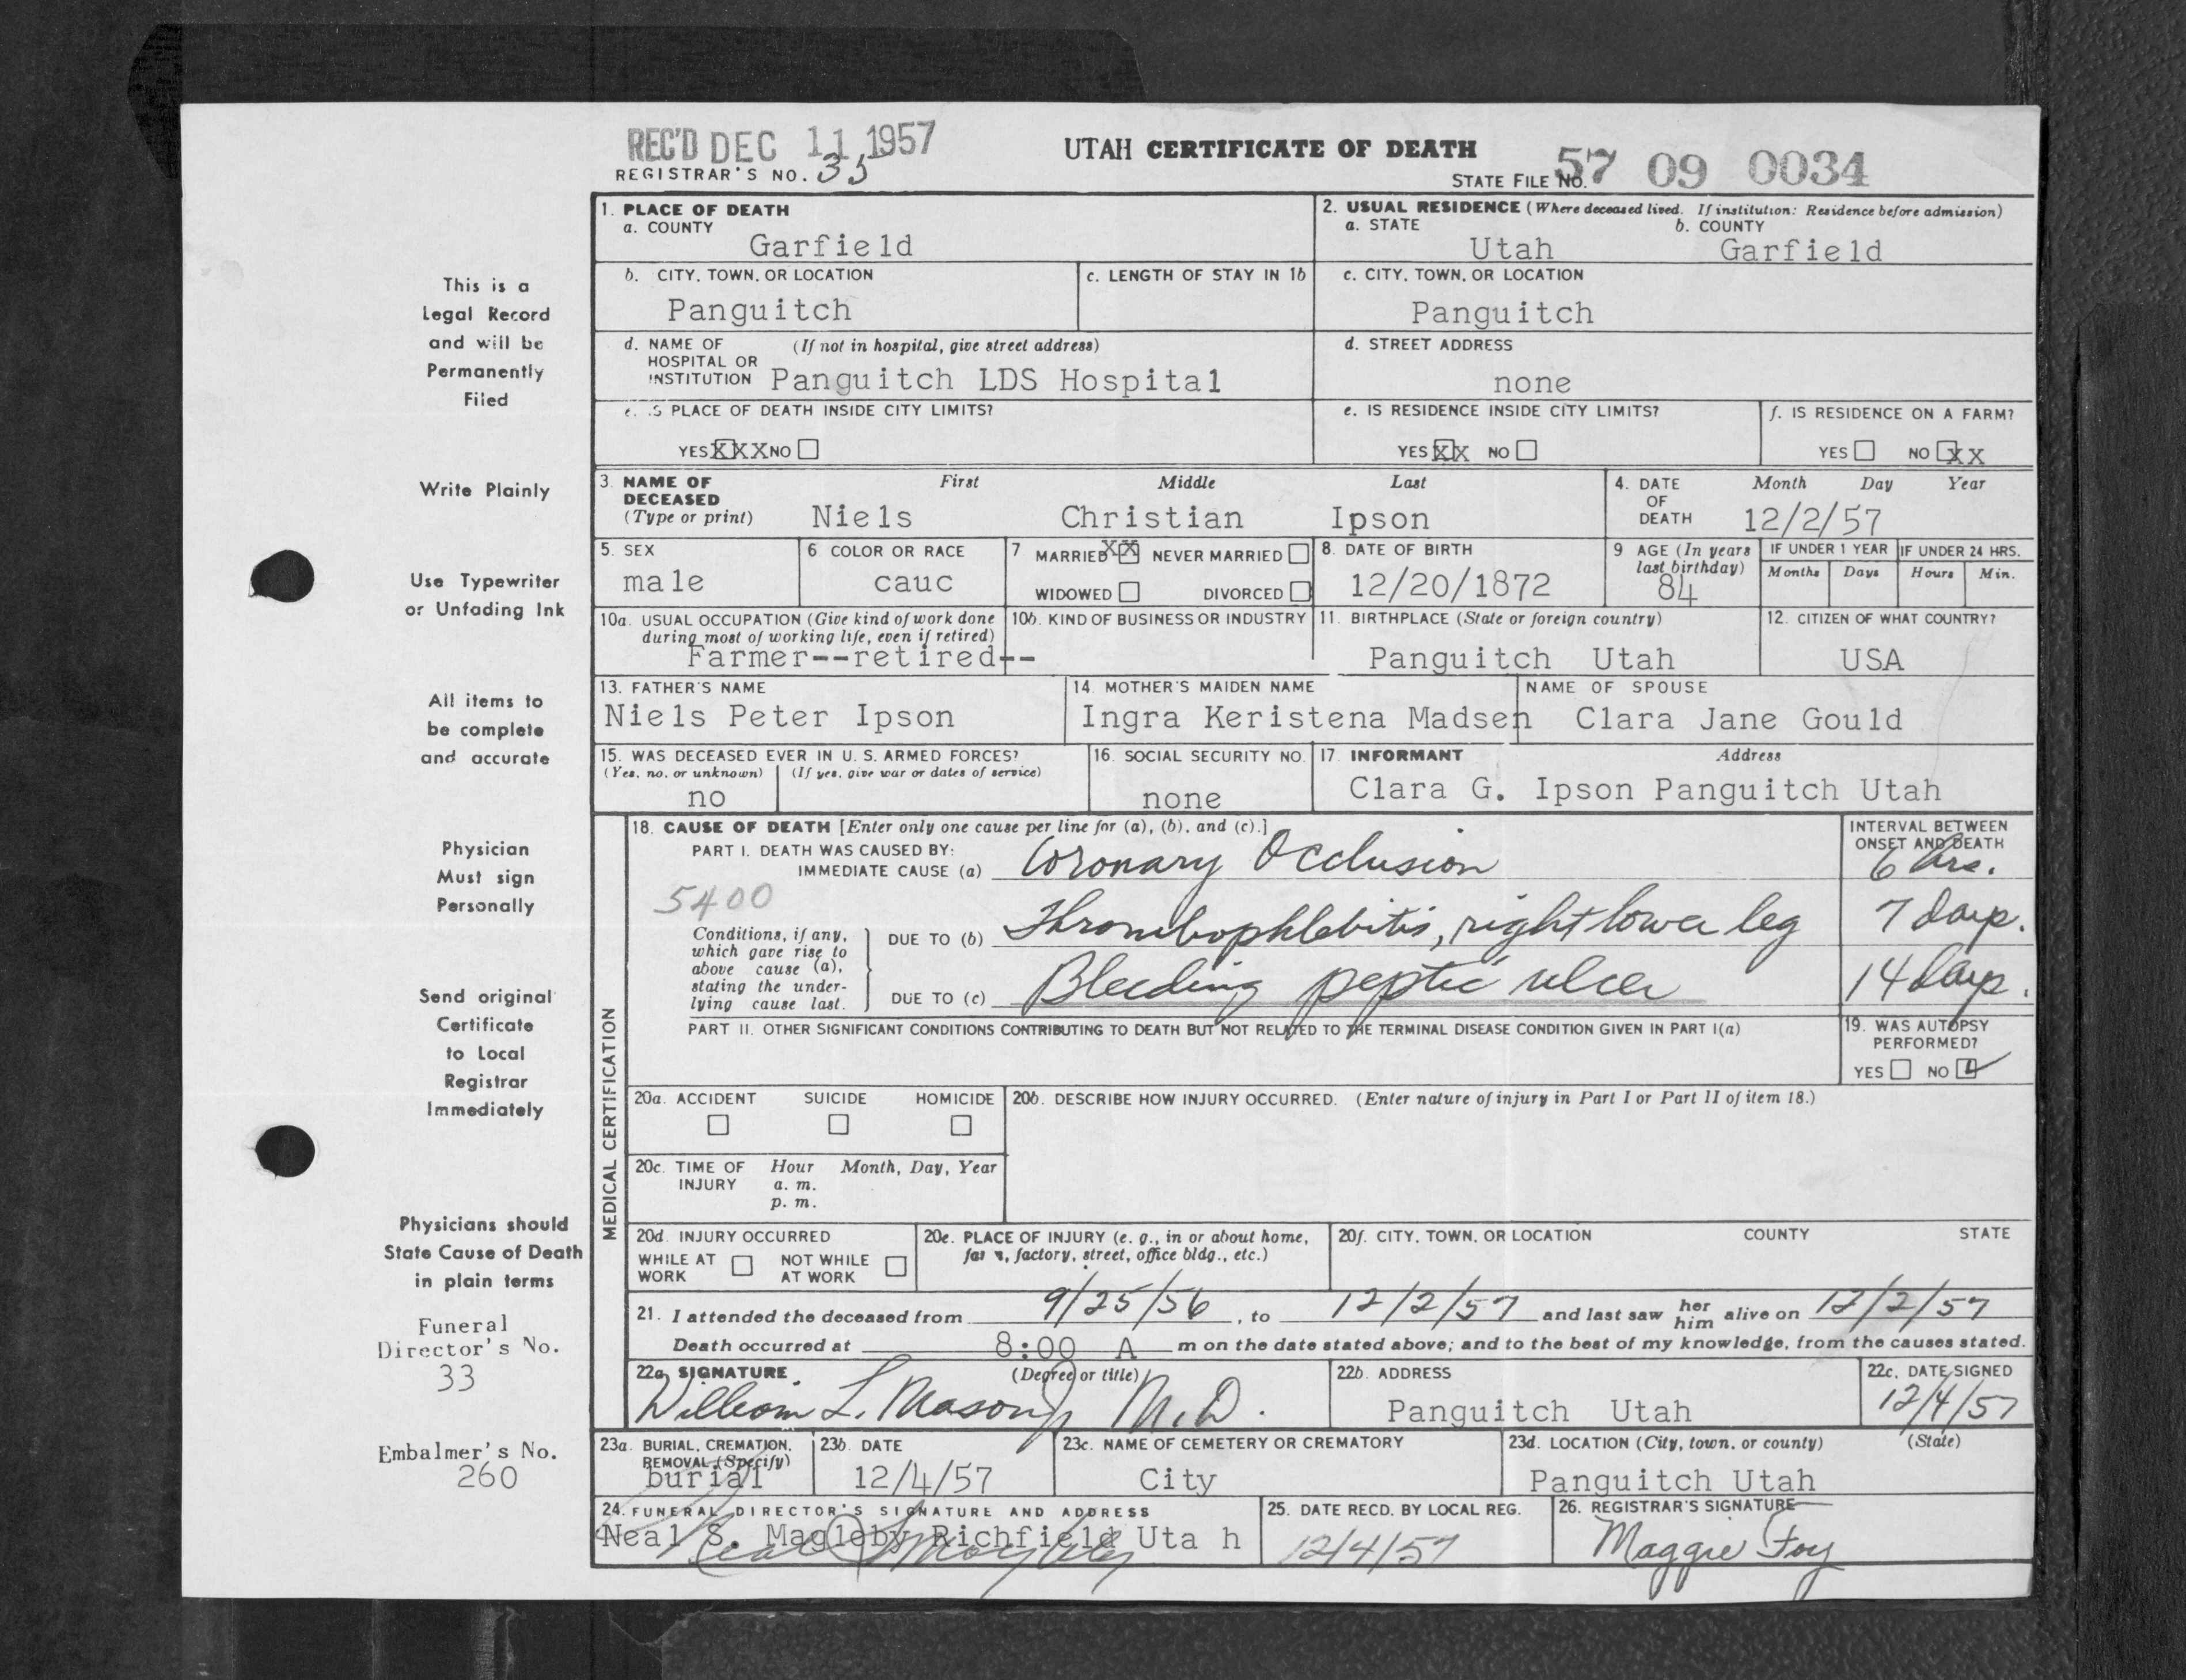 REC'D DEC 11 1957
UTAH CERTIFICATE OF DEATH
REGISTRAR'S NO. 35
STATE FILE NO. 57 09 0034
1. PLACE OF DEATH
a. COUNTY
Garfield
2. USUAL RESIDENCE (Where deceased lived. If institution: Residence before admission)
a. STATE b. COUNTY
Utah Garfield
b. CITY, TOWN, OR LOCATION
Panguitch
c. LENGTH OF STAY IN 1b
c. CITY, TOWN, OR LOCATION
Panguitch
d. NAME OF (If not in hospital, give street address)
HOSPITAL OR
INSTITUTION Panguitch LDS Hospital
d. STREET ADDRESS
none
e. IS PLACE OF DEATH INSIDE CITY LIMITS?
YES XXX NO
e. IS RESIDENCE INSIDE CITY LIMITS?
YES XX NO
f. IS RESIDENCE ON A FARM?
YES NO XX
3. NAME OF DECEASED (Type or print)
First Middle Last
Niels Christian Ipson
4. DATE OF DEATH
Month Day Year
12/2/57
5. SEX
male
6 COLOR OR RACE
cauc
7 MARRIED XX NEVER MARRIED
WIDOWED DIVORCED
8. DATE OF BIRTH
12/20/1872
9 AGE (In years last birthday)
84
IF UNDER 1 YEAR IF UNDER 24 HRS.
Months Days Hours Min.
10a. USUAL OCCUPATION (Give kind of work done
during most of working life, even if retired)
Farmer--retired--
10b. KIND OF BUSINESS OR INDUSTRY
11. BIRTHPLACE (State or foreign country)
Panguitch Utah
12. CITIZEN OF WHAT COUNTRY?
USA
13. FATHER'S NAME
Niels Peter Ipson
14. MOTHER'S MAIDEN NAME
Ingra Keristena Madsen
NAME OF SPOUSE
Clara Jane Gould
15. WAS DECEASED EVER IN U. S. ARMED FORCES?
(Yes, no, or unknown) (If yes, give war or dates of service)
no
16. SOCIAL SECURITY NO.
none
17. INFORMANT Address
Clara G. Ipson Panguitch Utah
MEDICAL CERTIFICATION
18. CAUSE OF DEATH [Enter only one cause per line for (a), (b), and (c).]
INTERVAL BETWEEN
ONSET AND DEATH
PART I. DEATH WAS CAUSED BY:
IMMEDIATE CAUSE (a) Coronary Occlusion 6 hrs.
5400
Conditions, if any,
which gave rise to
above cause (a),
stating the under-
lying cause last.
DUE TO (b) Thrombophlebitis, right lower leg 7 days.
DUE TO (c) Bleeding peptic ulcer 14 days.
PART II. OTHER SIGNIFICANT CONDITIONS CONTRIBUTING TO DEATH BUT NOT RELATED TO THE TERMINAL DISEASE CONDITION GIVEN IN PART I(a)
19. WAS AUTOPSY
PERFORMED?
YES NO
20a. ACCIDENT SUICIDE HOMICIDE
20b. DESCRIBE HOW INJURY OCCURRED. (Enter nature of injury in Part I or Part II of item 18.)
20c. TIME OF INJURY
Hour Month, Day, Year
a. m.
p. m.
20d. INJURY OCCURRED
WHILE AT WORK NOT WHILE AT WORK
20e. PLACE OF INJURY (e. g., in or about home,
farm, factory, street, office bldg., etc.)
20f. CITY, TOWN, OR LOCATION COUNTY STATE
21. I attended the deceased from 9/25/56, to 12/2/57 and last saw her him alive on 12/2/57
Death occurred at 8:00 A m on the date stated above; and to the best of my knowledge, from the causes stated.
22a. SIGNATURE (Degree or title)
William L. Mason Jr M.D.
22b. ADDRESS
Panguitch Utah
22c. DATE SIGNED
12/4/57
23a. BURIAL, CREMATION,
REMOVAL (Specify)
burial
23b. DATE
12/4/57
23c. NAME OF CEMETERY OR CREMATORY
City
23d. LOCATION (City, town, or county) (State)
Panguitch Utah
24. FUNERAL DIRECTOR'S SIGNATURE AND ADDRESS
Neal S. Magleby Richfield Uta h
Neal S Magleby
25. DATE RECD. BY LOCAL REG.
12/4/57
26. REGISTRAR'S SIGNATURE
Maggie Foy
This is a
Legal Record
and will be
Permanently
Filed
Write Plainly
Use Typewriter
or Unfading Ink
All items to
be complete
and accurate
Physician
Must sign
Personally
Send original
Certificate
to Local
Registrar
Immediately
Physicians should
State Cause of Death
in plain terms
Funeral
Director's No.
33
Embalmer's No.
260